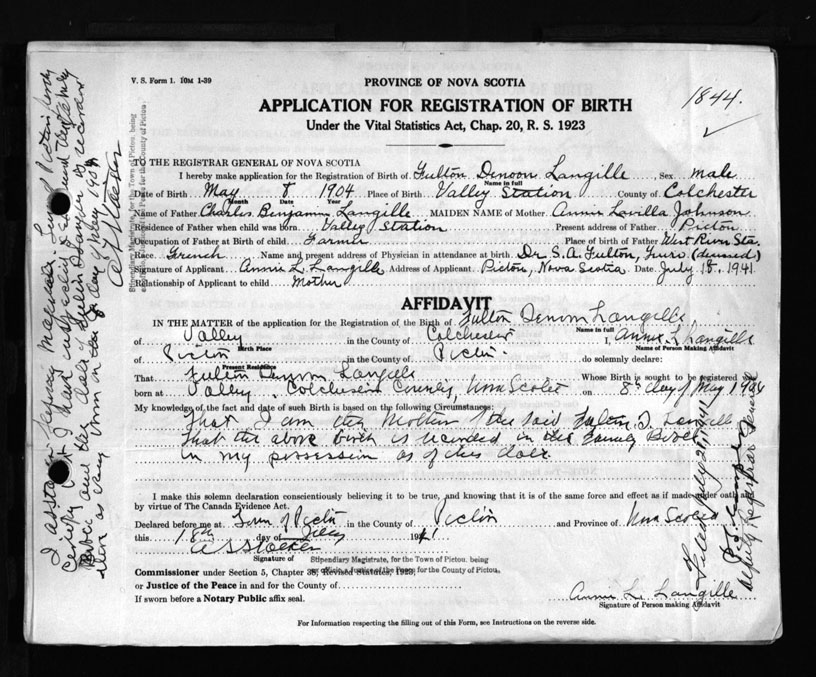 V. S. Form 1. 10M 1-39
PROVINCE OF NOVA SCOTIA
1844.
APPLICATION FOR REGISTRATION OF BIRTH
Under the Vital Statistics Act, Chap. 20, R. S. 1923
TO THE REGISTRAR GENERAL OF NOVA SCOTIA
I hereby make application for the Registration of Birth of Fulton Denoon Langille Sex male
Name in full
Date of Birth May 8 1904 Place of Birth Valley Station County of Colchester
Month Date Year
Name of Father Charles Benjamin Langille MAIDEN NAME of Mother Annie Lavilla Johnson
Residence of Father when child was born Valley Station Present address of Father Pictou
Occupation of Father at Birth of child Farmer Place of birth of Father West River Sta.
Race French Name and present address of Physician in attendance at birth Dr. S. A. Fulton, Truro (deceased)
Signature of Applicant Annie L. Langille Address of Applicant Pictou, Nova Scotia Date July 18, 1941
Relationship of Applicant to child Mother
AFFIDAVIT
IN THE MATTER of the application for the Registration of the Birth of Fulton Denoon Langille
Name in full
of Valley in the County of Colchester I, Annie L Langille
Birth Place Name of Person Making Affidavit
of Pictou in the County of Pictou do solemnly declare:
Present Residence
That Fulton Denoon Langille Whose Birth is sought to be registered
born at Valley, Colchester County, Nova Scotia on 8th day of May 1904
My knowledge of the fact and date of such Birth is based on the following Circumstances:
That I am the Mother of the said Fulton D. Langille
That the above birth is recorded in the Family Bible
in my possession as of this date.
I make this solemn declaration conscientiously believing it to be true, and knowing that it is of the same force and effect as if made under oath and
by virtue of The Canada Evidence Act.
Declared before me at Town of Pictou in the County of Pictou and Province of Nova Scotia
this 18th day of July 1941
Signature of
Stipendiary Magistrate, for the Town of Pictou, being
Commissioner under Section 5, Chapter 38, Revised Statutes, 1923,
ex officio, a Justice of the Peace for the County of Pictou.
or Justice of the Peace in and for the County of
If sworn before a Notary Public affix seal.
Annie L. Langille
Signature of Person making Affidavit
For Information respecting the filling out of this Form, see Instructions on the reverse side.
Stipendiary Magistrate, for the Town of Pictou, being
ex officio, a Justice of the Peace for the County of Pictou.
Deputy Registrar General